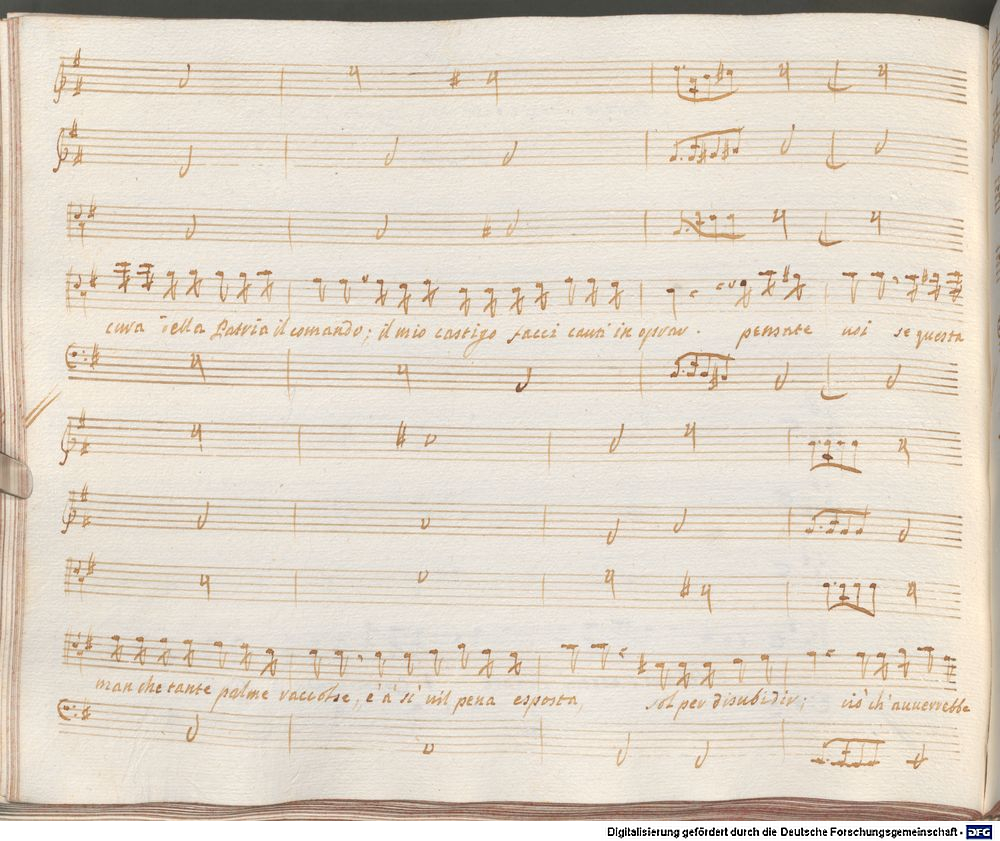 cura della Patria il comando; il mio castigo facci cauti in oprar. pensate voi se questa
man che tante palme raccolse, è à si vil pena esposta, sol per disubidir; ciò ch'avverrebbe
Digitalisierung gefördert durch die Deutsche Forschungsgemeinschaft - DFG